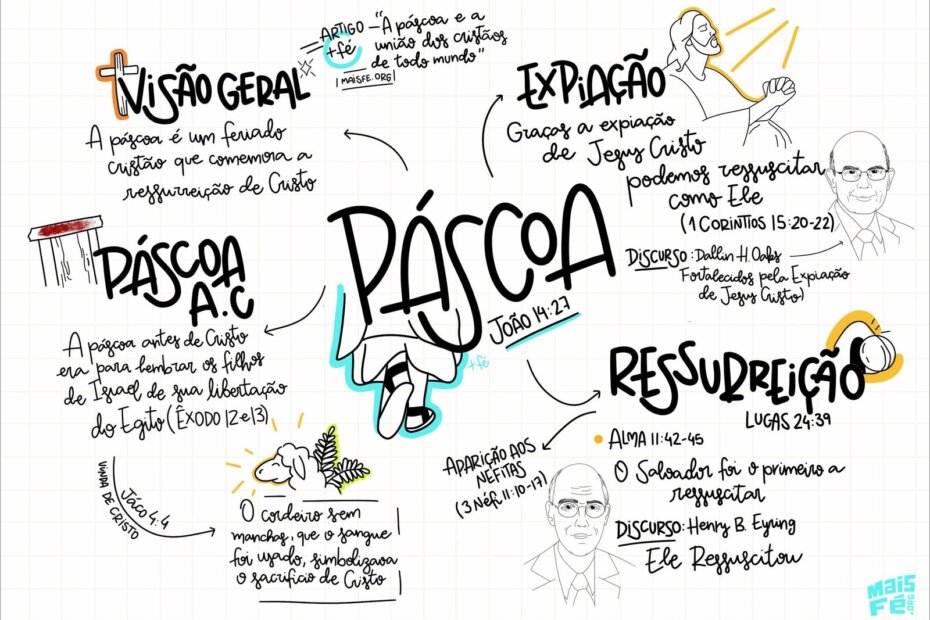 VISÃO GERAL
A páscoa é um feriado
cristão que comemora a
ressurreição de Cristo
ARTIGO - "A páscoa e a
+fé união dos cristãos
de todo mundo"
| MAISFE.ORG |
EXPIAÇÃO
Graças a expiação
de Jesus Cristo
podemos ressuscitar
como Ele
(1 CORINTIOS 15:20-22)
DISCURSO: Dallin H. Oaks
Fortalecidos pela Expiação
de Jesus Cristo)
PÁSCOA
JOÃO 14:27
+fé
PÁSCOA
A.C
A páscoa antes de Cristo
era para lembrar os filhos
de Israel de sua libertação
do Egito (ÊXODO 12 e 13)
JACÓ 4:4
VINDA DE CRISTO
O cordeiro sem
manchas, que o sangue
foi usado, simbolizava
o sacrifício de Cristo
RESSURREIÇÃO
LUCAS 24:39
ALMA 11:42-45
O Salvador foi o primeiro a
ressuscitar
DISCURSO: Henry B. Eyring
Ele Ressuscitou
APARIÇÃO AOS
NEFITAS
(3 Néfi 11:10-17)
MAIS
FÉ
.ORG